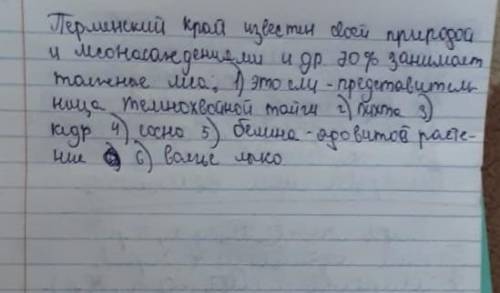 Пермский край известен своей природой
и лесонасаждениями и др 70% занимает
таежные леса; 1) это ели - представитель
ница темнохвойной тайги 2) пихта 3)
кедр 4) сосна 5) белина - ядовитой расте-
ние 6) волчье лыко